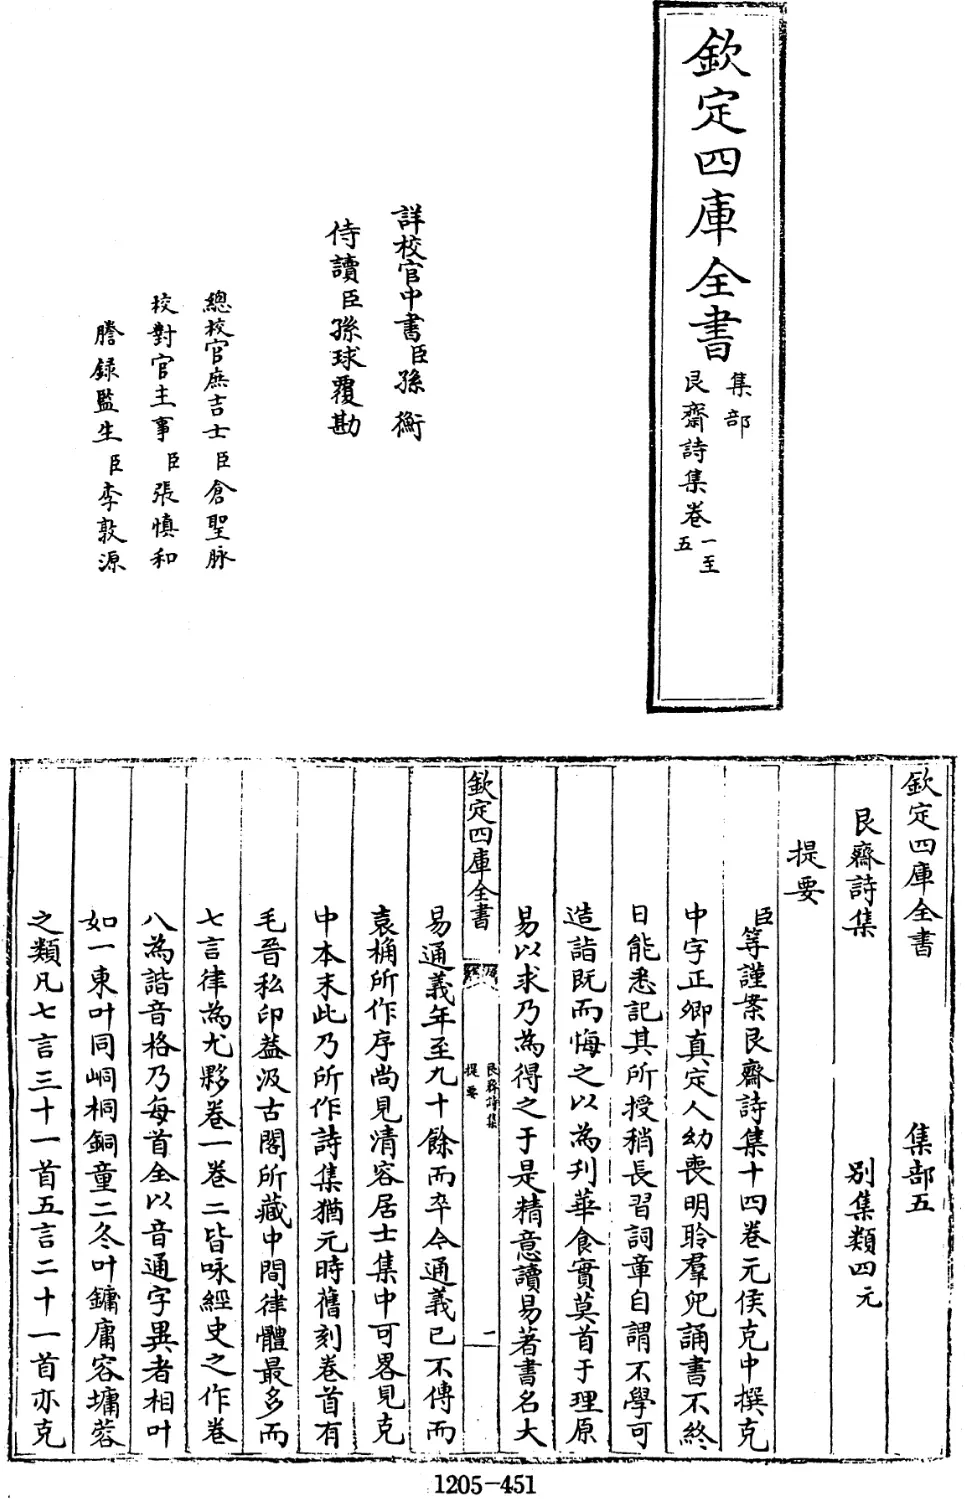 欽定四庫全書
集部
艮齋詩集卷
一至
五
詳校官中書臣孫衡
侍讀臣孫球覆勘
總校官庶吉士臣倉聖脉
校對官主事臣張慎和
謄録監生臣李敦源
欽定四庫全書 集部五
艮齋詩集 别集類四元
提要
臣等謹案艮齋詩集十四卷元侯克中撰克
中字正卿真定人幼喪明聆羣兒誦書不終
日能悉記其所授稍長習詞章自謂不學可
造詣既而悔之以為刋華食實莫首于理原
易以求乃為得之于是精意讀易著書名大
欽定四庫全書
艮齋詩集
提要
一
易通義年至九十餘而卒今通義已不傳而
袁桷所作序尚見清容居士集中可畧見克
中本末此乃所作詩集猶元時舊刻卷首有
毛晉私印葢汲古閣所藏中間律體最多而
七言律為尤夥卷一卷二皆咏經史之作卷
八為諧音格乃每首全以音通字異者相叶
如一東叶同峒桐銅童二冬叶鏞庸容墉蓉
之類凡七言三十一首五言二十一首亦克
1205-451